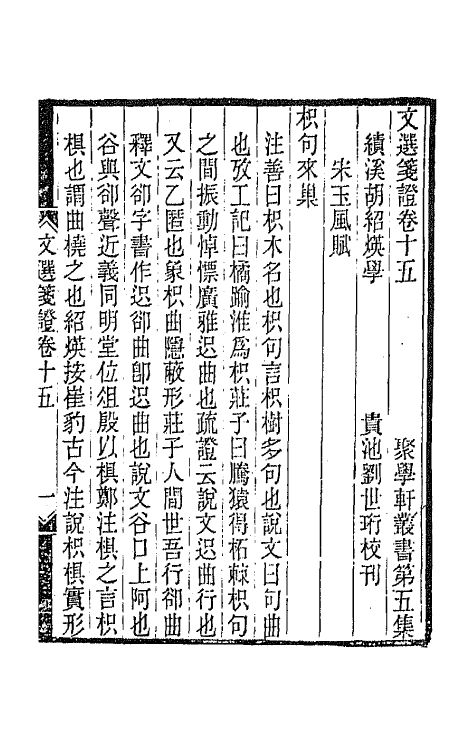 文選箋證卷十五　聚學軒叢書第五集
績溪胡紹煐學　貴池劉世珩校刊
宋玉風賦
枳句來巢
注善曰枳木名也枳句言枳樹多句也說文曰句曲
也攷工記曰橘踰淮爲枳莊子曰騰猿得柘棘枳句
之間振動悼慄廣雅迟曲也疏證云說文迟曲行也
又云乙匿也象枳曲隱蔽形莊子人間世吾行卻曲
釋文卻字書作迟卻曲卽迟曲也說文谷口上阿也
谷與卻聲近義同明堂位俎殷以椇鄭注椇之言枳
椇也謂曲橈之也紹煐按崔豹古今注說枳椇實形
文選箋證卷十五　一